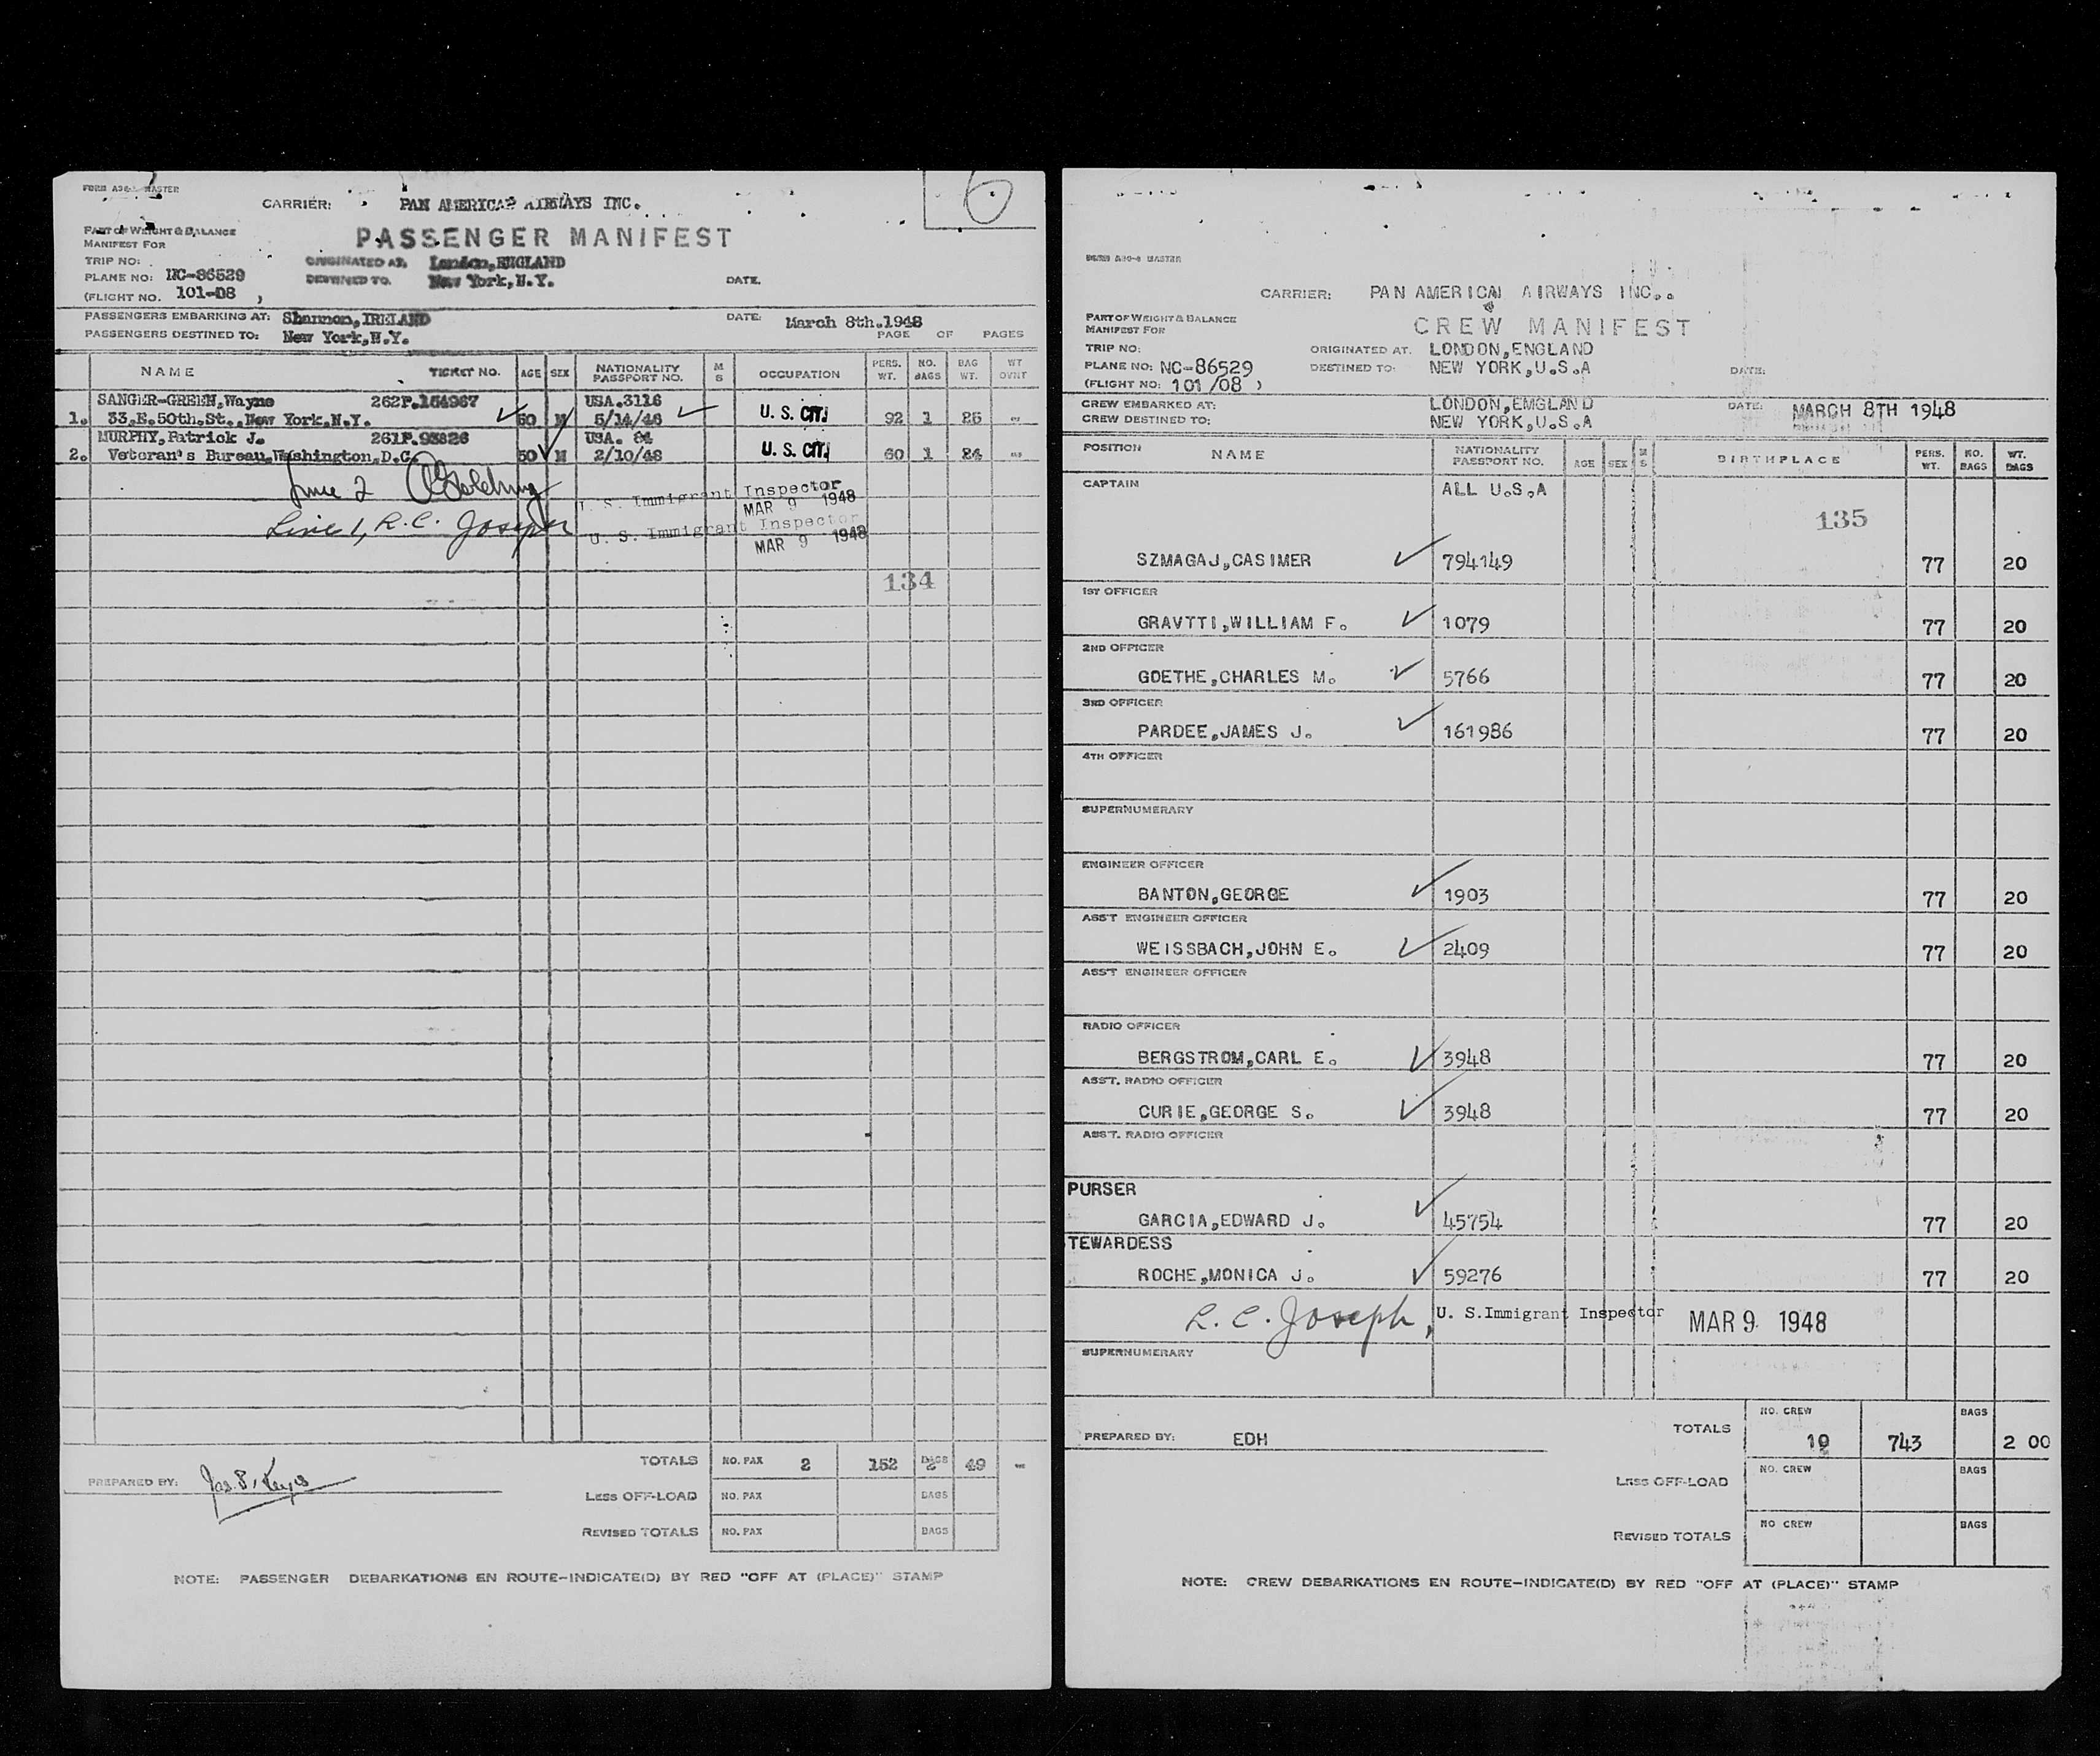 FORM A30-1 MASTER
6
CARRIER: PAN AMERICAN AIRWAYS INC.
PART OF WEIGHT & BALANCE
MANIFEST FOR
PASSENGER MANIFEST
TRIP NO:
ORIGINATED AT, London,ENGLAND
PLANE NO: NC-86529
DESTINED TO. New York,N.Y.
DATE.
(FLIGHT NO. 101-08 )
PASSENGERS EMBARKING AT: Shannon,IRELAND
DATE: March 8th.1948
PASSENGERS DESTINED TO: New York,N.Y.
PAGE OF PAGES
NAME TICKET NO. AGE SEX NATIONALITY PASSPORT NO. M S OCCUPATION PERS. WT. NO. BAGS BAG WT. WT OVNT
SANGER-GREEN,Wayne 262P.154967 USA.3116
1. 33,E.50th.St.,New York.N.Y. 50 M 5/14/46 U. S. CIT. 92 1 25 -
MURPHY,Patrick J. 261P.93826 USA. 84
2. Veteran's Bureau,Washington,D.C. 50 M 2/10/48 U. S. CIT. 60 1 24 -
Line 2
U. S. Immigrant Inspector
MAR 9 1948
Line 1, R.C. Joseph
U. S. Immigrant Inspector
MAR 9 1948
134
TOTALS NO. PAX 2 152 BAGS 2 49 -
PREPARED BY:
LESS OFF-LOAD NO. PAX BAGS
REVISED TOTALS NO. PAX BAGS
NOTE: PASSENGER DEBARKATIONS EN ROUTE-INDICATE(D) BY RED "OFF AT (PLACE)" STAMP
FORM A30-2 MASTER
CARRIER: PAN AMERICAN AIRWAYS INC..
PART OF WEIGHT & BALANCE
MANIFEST FOR
CREW MANIFEST
TRIP NO:
ORIGINATED AT. LONDON,ENGLAND
PLANE NO: NC-86529
DESTINED TO: NEW YORK,U.S.A
DATE:
(FLIGHT NO: 101/08 )
CREW EMBARKED AT: LONDON,EMGLAND
DATE: MARCH 8TH 1948
CREW DESTINED TO: NEW YORK,U.S.A
POSITION NAME NATIONALITY PASSPORT NO. AGE SEX M S BIRTHPLACE PERS. WT. NO. BAGS WT. BAGS
CAPTAIN ALL U.S.A
135
SZMAGAJ,CASIMER 794149 77 20
1ST OFFICER
GRAVTTI,WILLIAM F. 1079 77 20
2ND OFFICER
GOETHE,CHARLES M. 5766 77 20
3RD OFFICER
PARDEE,JAMES J. 161986 77 20
4TH OFFICER
SUPERNUMERARY
ENGINEER OFFICER
BANTON,GEORGE 1903 77 20
ASS'T ENGINEER OFFICER
WEISSBACH,JOHN E. 2409 77 20
ASS'T ENGINEER OFFICER
RADIO OFFICER
BERGSTROM,CARL E. 3948 77 20
ASS'T. RADIO OFFICER
CURIE,GEORGE S. 3948 77 20
ASS'T. RADIO OFFICER
PURSER
GARCIA,EDWARD J. 45754 77 20
TEWARDESS
ROCHE,MONICA J. 59276 77 20
R. C. Joseph, U. S.Immigrant Inspector MAR 9 1948
SUPERNUMERARY
NO. CREW BAGS
TOTALS 10 743 2 00
PREPARED BY: EDH
LESS OFF-LOAD NO. CREW BAGS
REVISED TOTALS NO CREW BAGS
NOTE: CREW DEBARKATIONS EN ROUTE-INDICATE(D) BY RED "OFF AT (PLACE)" STAMP